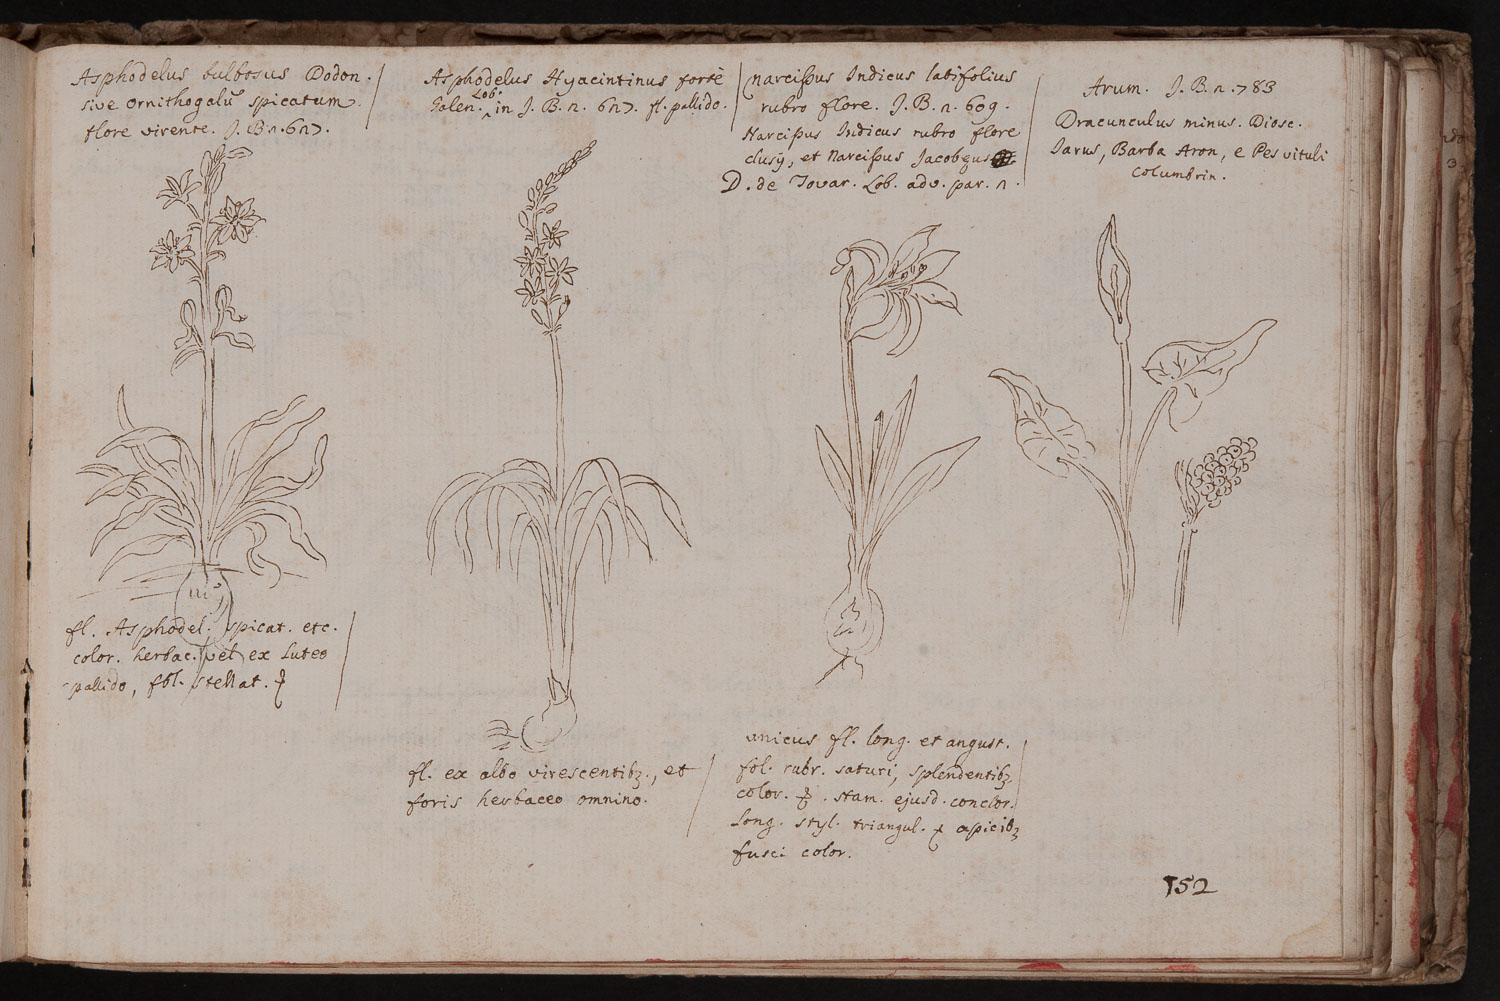 Asphodelus bulbosus Dodon.
sive ornithogalū spicatum.
flore virente. J. B. n. 627.
Asphodelus Hyacintinus fortè
Galen. Lob. in J. B. n. 627. fl. pallido.
narcissus Indicus latifolius
rubro flore. J. B. n. 609.
Narcissus Indicus rubro flore
clusÿ, et Narcissus Jacobęus
D. de Tovar. Lob. adv. par. n.
Arum. J. B. n. 783
Dracunculus minus. Diosc.
Jarus, Barba Aron, e Pes vituli
Columbrin.
fl. Asphodel. spicat. etc.
color. herbac. vel ex luteo
pallido, fol. stellat.
fl. ex albo virescentibꝫ., et
foris herbaceo omnino.
unicus fl. long. et angust.
fol. rubr. saturi, splendentibꝫ
color. stam. ejusd. concolor.
long. styl. triangul. apicibꝫ
fusci color.
152